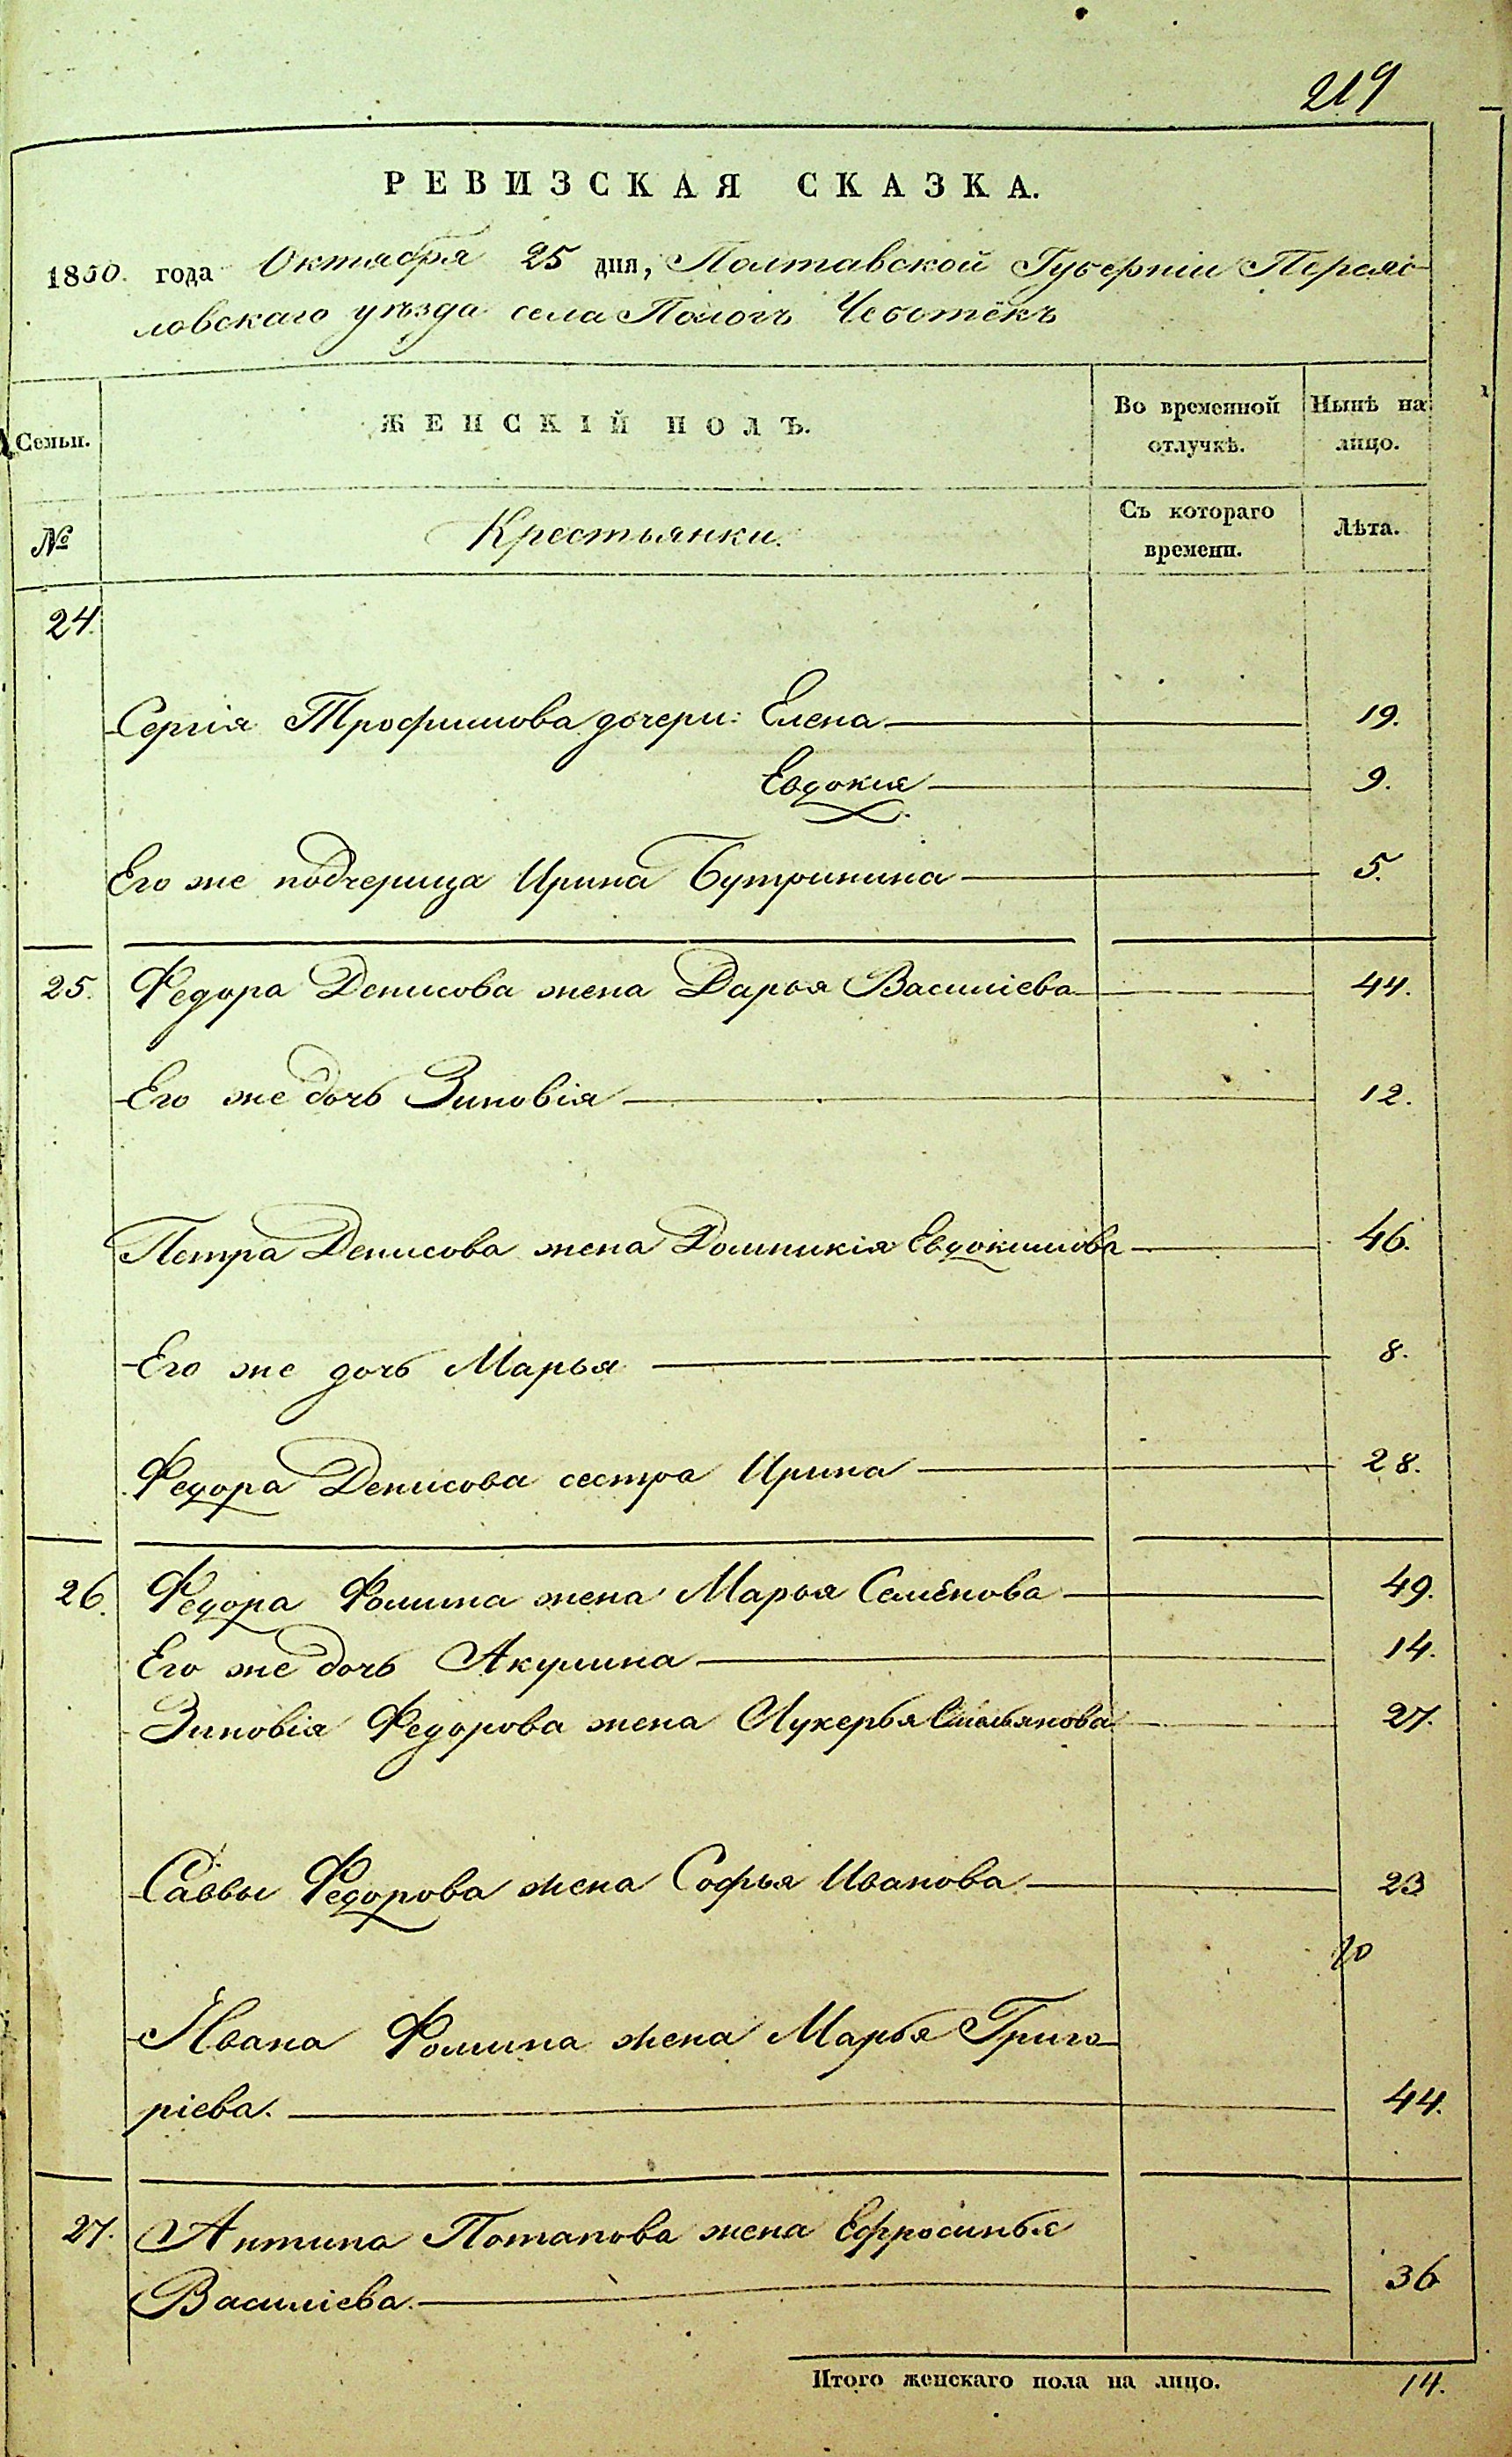 219
РЕВИЗСКАЯ СКАЗКА.
1850. года Октября 25 дня, Полтавской Губерніи Переяс-
ловскаго уѣзда села Пологъ Чеботёкъ
Семьи. ЖЕНСКІЙ ПОЛЪ. Во временной отлучкѣ. Нынѣ на лицо.
№ Крестьянки. Съ котораго времени. Лѣта.
24.
Сергія Трофимова дочери: Елена 19.
Евдокия 9.
Его же подчерица Ирина Бутринина 5.
25. Федора Денисова жена Дарья Василіева 44.
Его же дочь Зиновія 12.
Петра Денисова жена Домникія Евдокимова 46.
Его же дочь Марья 8.
Федора Денисова сестра Ирина 28.
26. Федора Фомина жена Марья Семёнова 49.
Его же дочь Акулина 14.
Зиновія Федорова жена Лукерья 27.
Саввы Федорова жена Софья Иванова 23
Ивана Фомина жена Марья Григо-
ріева. 44.
27. Антипа Потапова жена Ефросинья
Василіева. 36
Итого женскаго пола на лицо. 14.